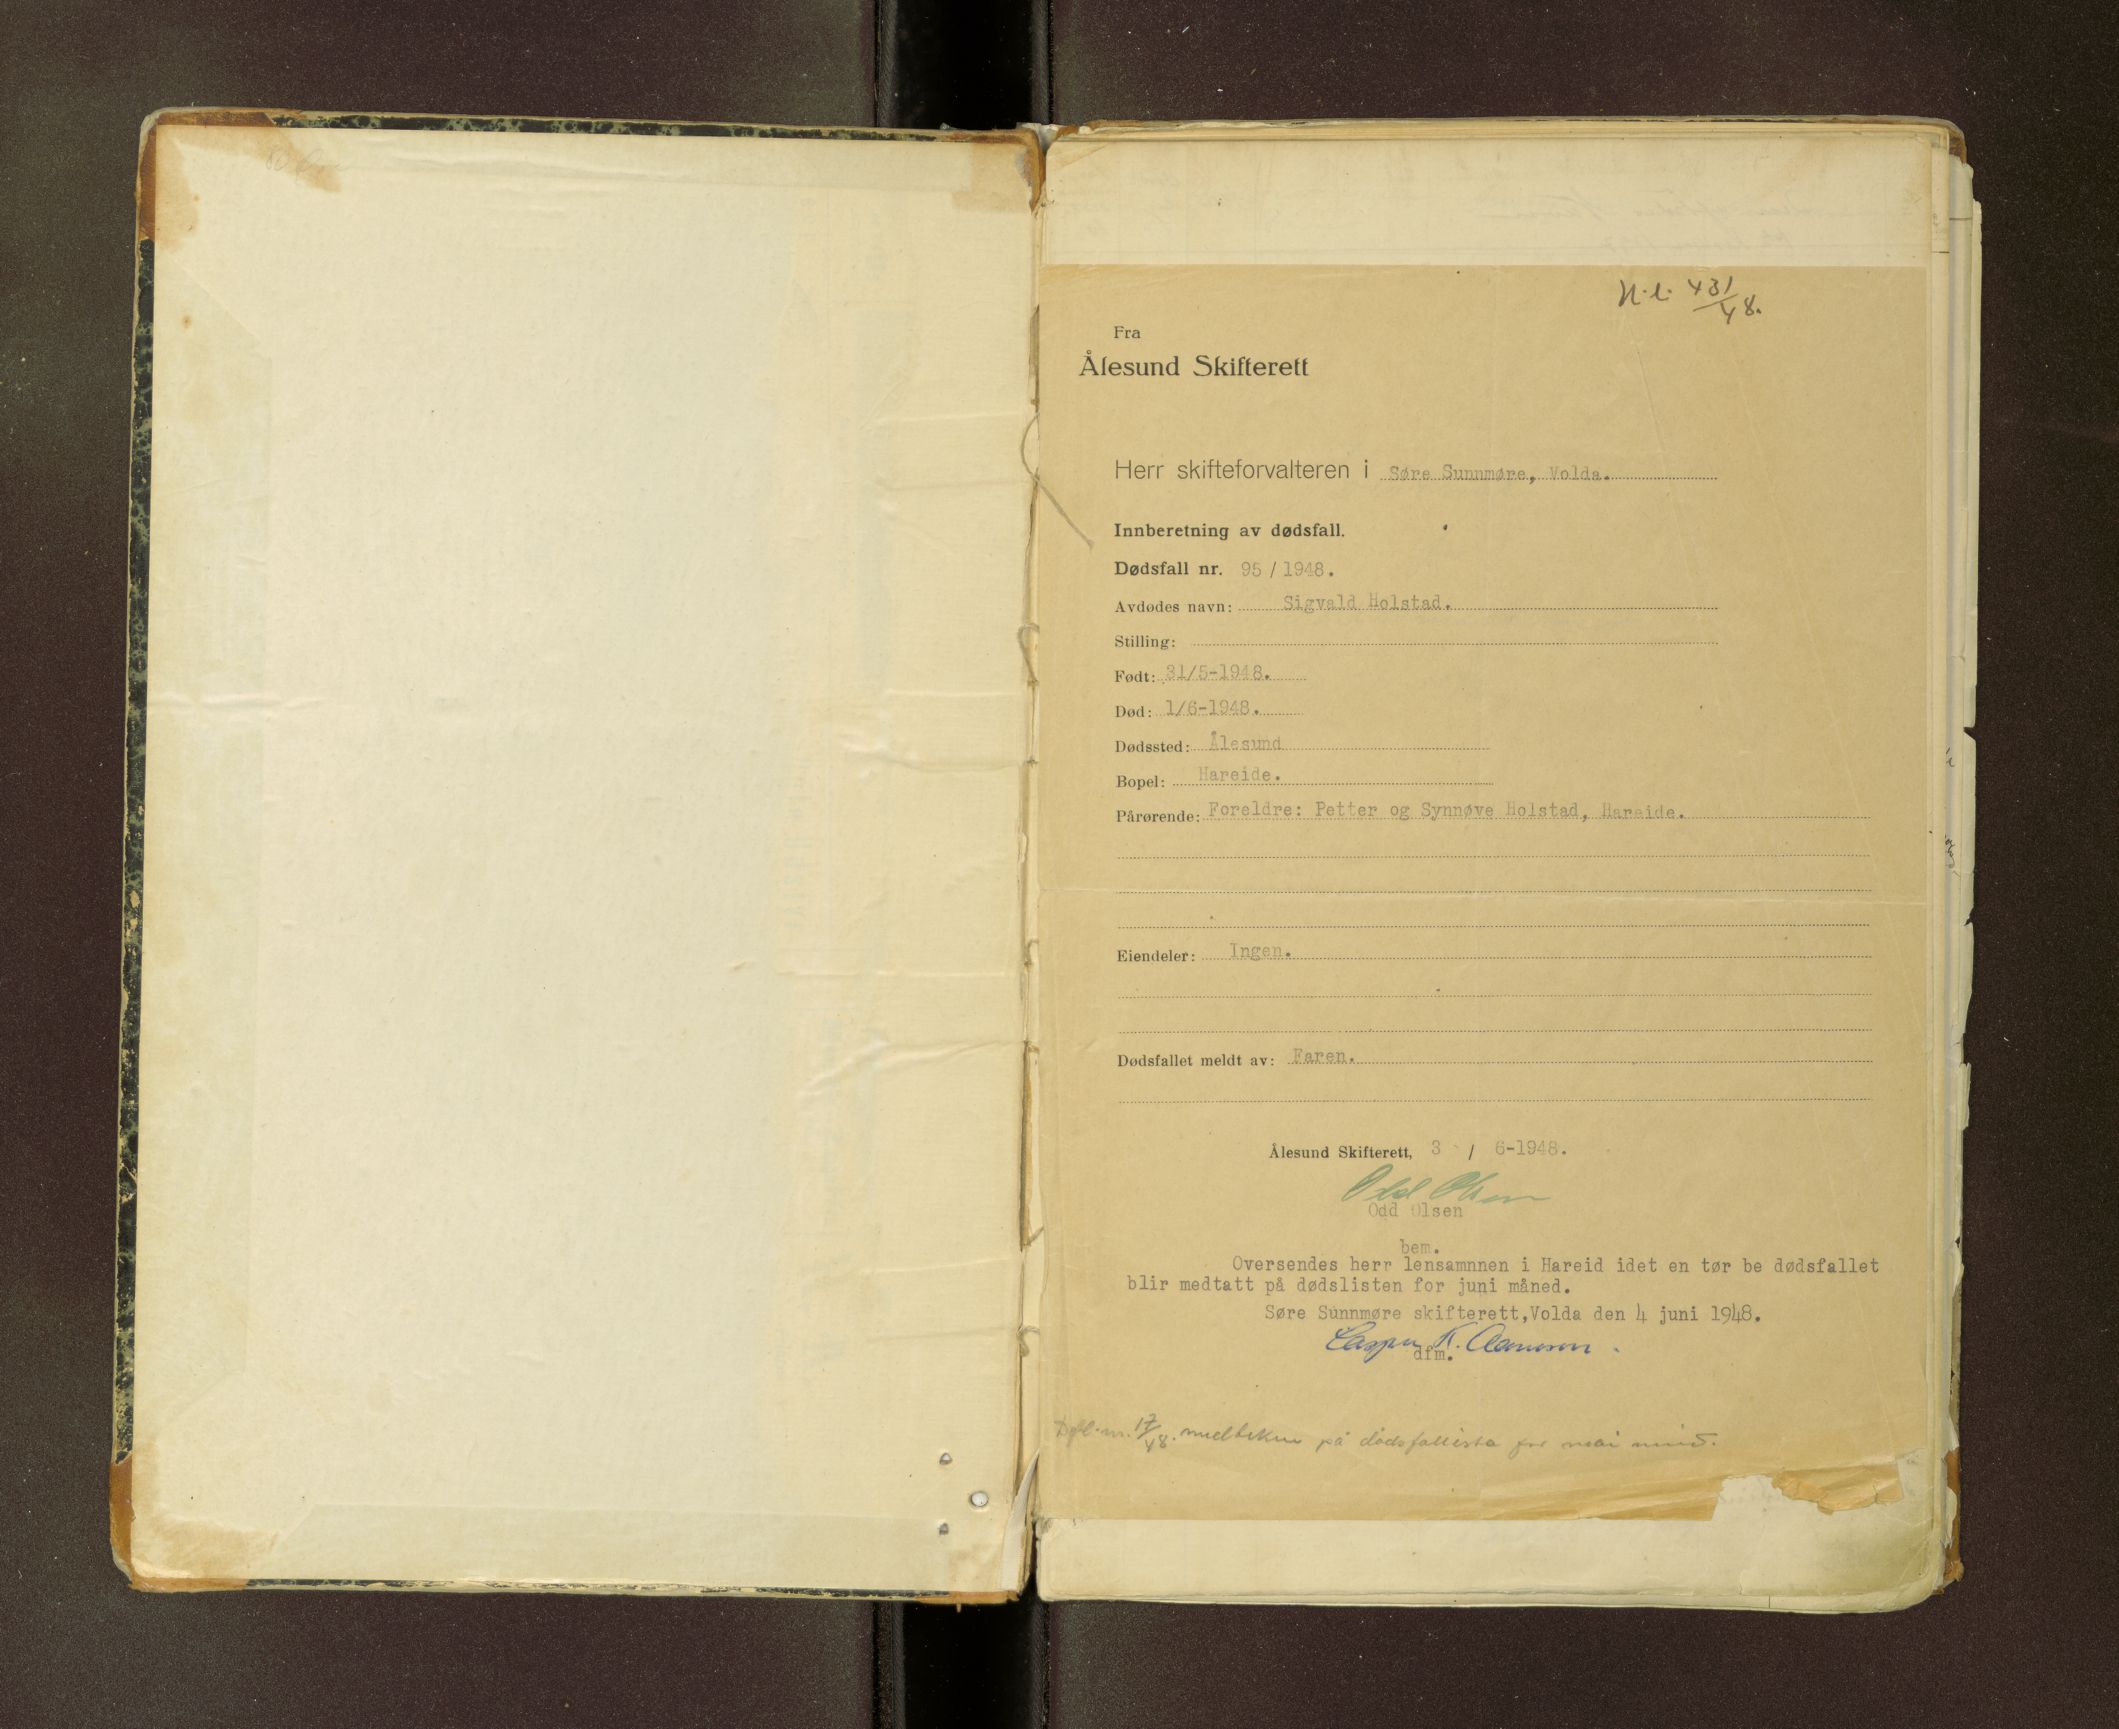 N.l. 431/48.
Fra
Ålesund Skifterett
Herr skifteforvalteren i Søre Sunnmøre, Volda.
Innberetning av dødsfall.
Dødsfall nr. 95 / 1948.
Avdødes navn: Sigvald Holstad.
Stilling:
Født: 31/5-1948.
Død: 1/6-1948.
Dødssted: Ålesund
Bopel: Hareide.
Pårørende: Foreldre: Petter og Synnøve Holstad, Hareide.
Eiendeler: Ingen.
Dødsfallet meldt av: Faren.
Ålesund Skifterett, 3 / 6-1948.
Odd Olsen
Odd Olsen
bem.
Oversendes herr lensamnnen i Hareid idet en tør be dødsfallet
blir medtatt på dødslisten for juni måned.
Søre Sunnmøre skifterett,Volda den 4 juni 1948.
Casper K. Aamoson.
dfm.
17/48. på dødsfallista for mai